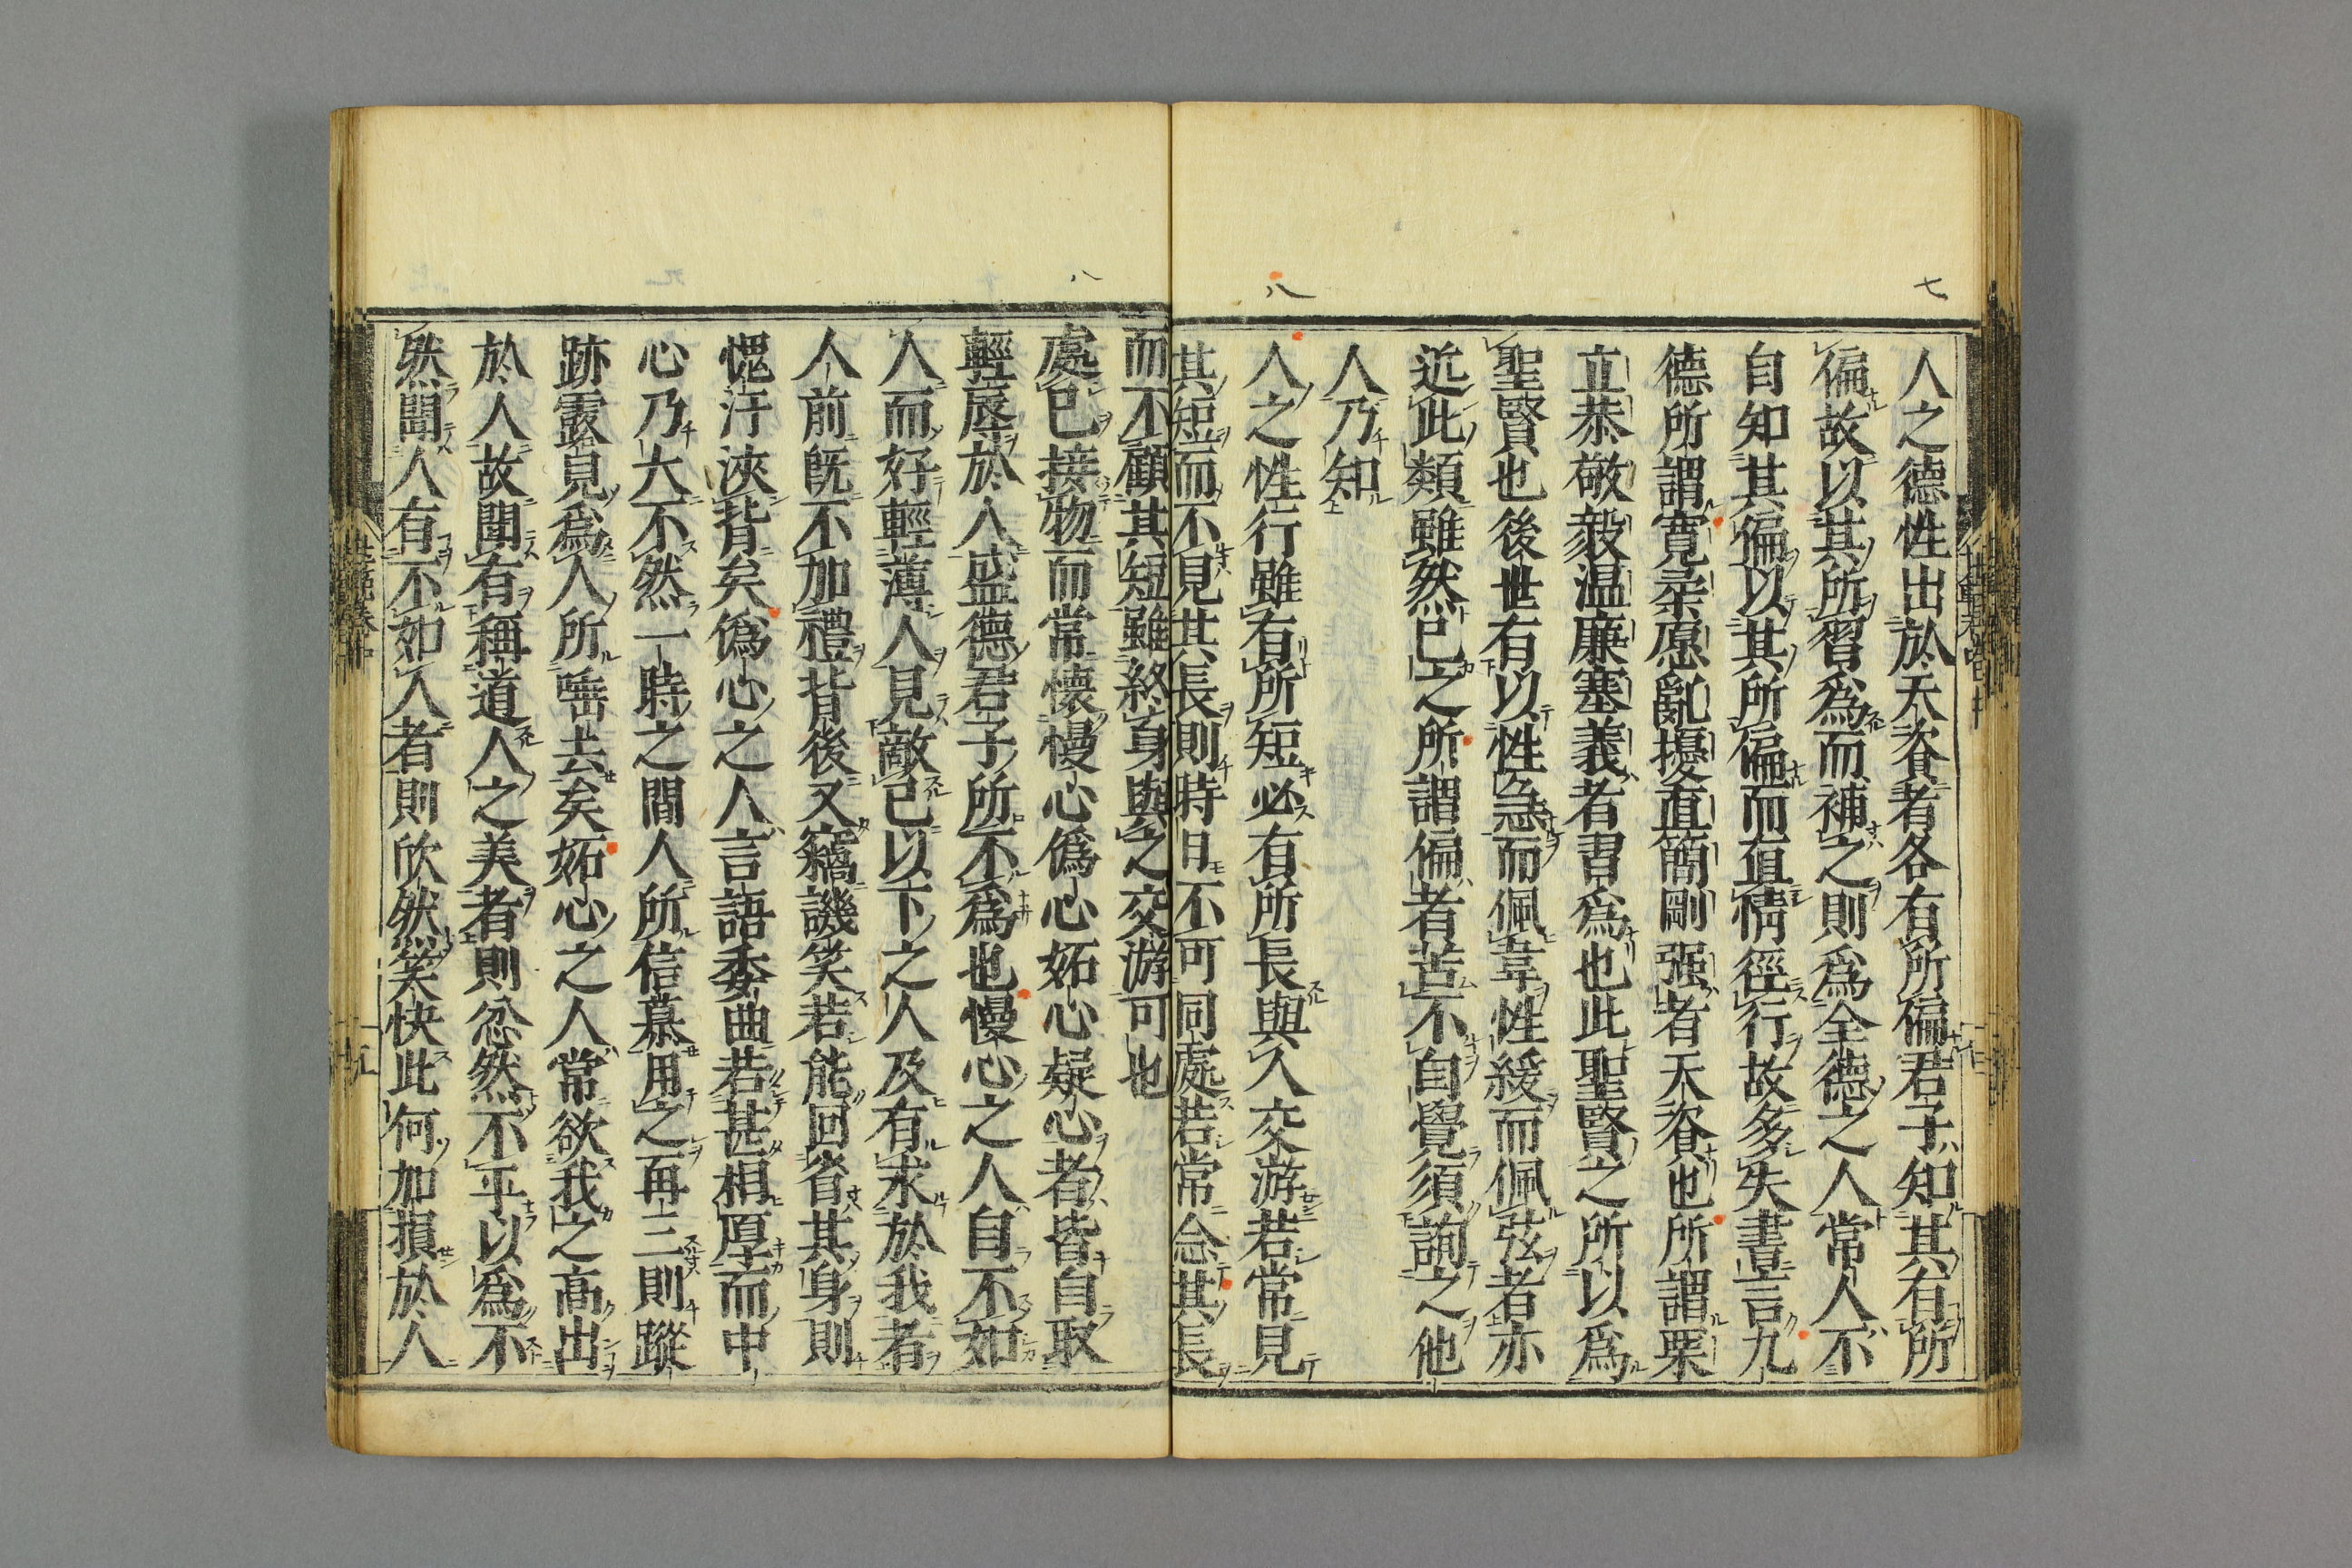 七
人之德性出於天資者各有所偏君子知其有所
偏故以其所習爲而補之則爲全德之人常人不
自知其偏以其所偏而直情徑行故多失書言九
德所謂寛柔愿亂擾直簡剛强者天資也所謂栗
立恭敬毅温廉塞義者習爲也此聖賢之所以爲
聖賢也後世有以性急而佩韋性緩而佩弦者亦
近此類雖然已之所謂偏者苦不自覺須詢之他
人乃知
八
人之性行雖有所短必有所長與人交游若常見
其短而不見其長則時日不可同處若常念其長
而不顧其短雖終身與之交游可也
八
處已接物而常懷慢心僞心妬心疑心者皆自取
輕辱於人盛德君子所不爲也慢心之人自不如
人而好輕薄人見敵已以下之人及有求於我者
人前既不加禮背後又竊譏笑若能回省其身則
愧汗浹背矣僞心之人言語委曲若甚相厚而中
心乃大不然一時之間人所信慕用之再三則蹤
跡露見爲人所唾去矣妬心之人常欲我之高出
於人故聞有稱道人之美者則忿然不平以爲不
然聞人有不如人者則欣然笑快此何加損於人
世範卷中
十五